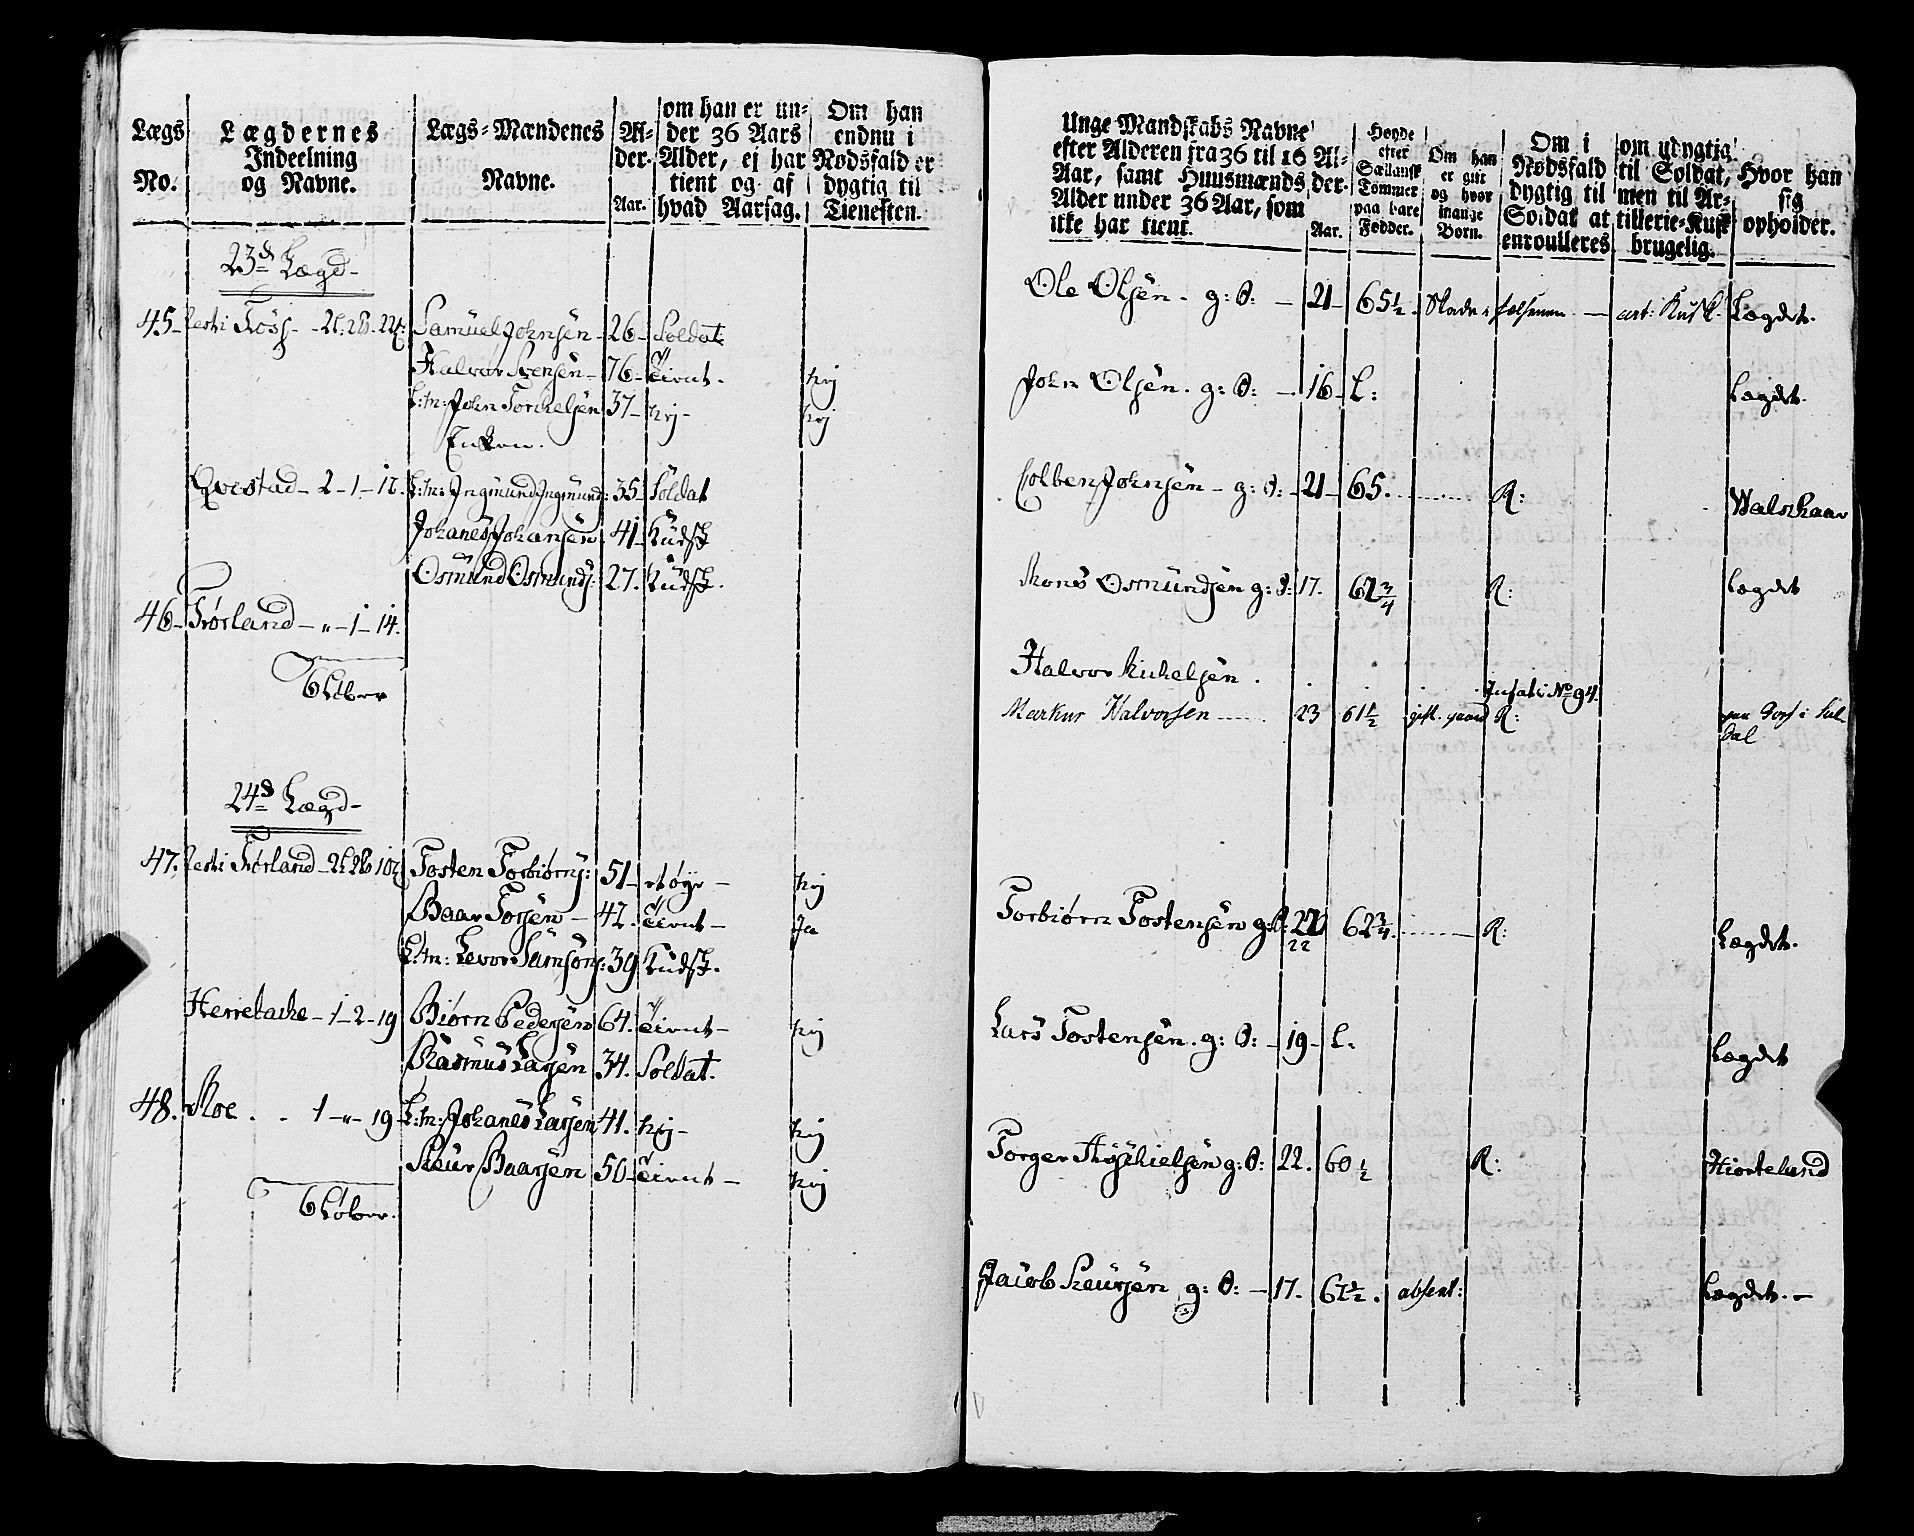 Lægs No.
Lægdernes Indeelning og Navne.
Lægs-Mændenes Navne.
Al-der. Aar.
om han er un-der 36 Aars Alder, ej har tient og af hvad Aarsag.
Om han endnu i Nødsfald er dygtig til Tienesten.
23d Lægd-
45- Føss- Samuel Johnsen- 26- Soldat
Halvor Svensen- 76- tient. Nej
L:m: John Torchelsen 37- Nej- Nej
Enken.
Qvestad- 2-1-12. L:m: Ingmund Ingmund: 35- Soldat
Johanes Johansen 41- Kudsk
Osmund Osmunds: 27. Kudsk.
46- Førland- „-1-14.
6 Løber
24d Lægd-
47. Førland- Tosten Torbiørns: 51- Nej
Baar Torsen- 42. tient- Ja
L:m: Levor Samsons: 39 Kudsk.
Herrebacke- 1-2-19 Biørn Pedersen 64. tient- Nej
Rasmus Larsen 34. Soldat.
48. Moe . . 1-„-19- L:m: Johanes Larsen 41. Nej- Nej
Sieur Baarsen 50- tient- Nej
6 Løber.
Unge Mandskabs Navne efter Alderen fra 36 til 16 Aar, samt Huusmænds Alder under 36 Aar, som ikke har tient.
Al-der. Aar.
Høyde efter Siællansk Tommer paa bare Fødder.
Om han er gift og hvor mange Børn.
Om i Nødsfald dygtig til Soldat at enroulleres
om udygtig til Soldat, men til Ar-tillerie-Kusk brugelig.
Hvor han sig opholder.
Ole Olsen. g: S: - 21- 65½. Skade i - art: Kusk. Lægdet.
John Olsen. g: S: - 16- L: Lægdet.
Colben Johnsen- g: S:- 21- 65. R: Walskaar
Mons Osmundsen g: S: 17. 62¾ R: Lægdet
Halvor Michelsen . . . . . No 94.
Markus Halvorsen 23 61½ R: dal
Torbiørn Tostensen g: S: 22 62¾. R: Lægdet.
Lars Tostensen. g: S: - 19- L: Lægdet
Torger g: S: 22. 60½ R: Hiortelund
Jacob Sieursen g: S: - 17. 61½. absent: Lægdet.-